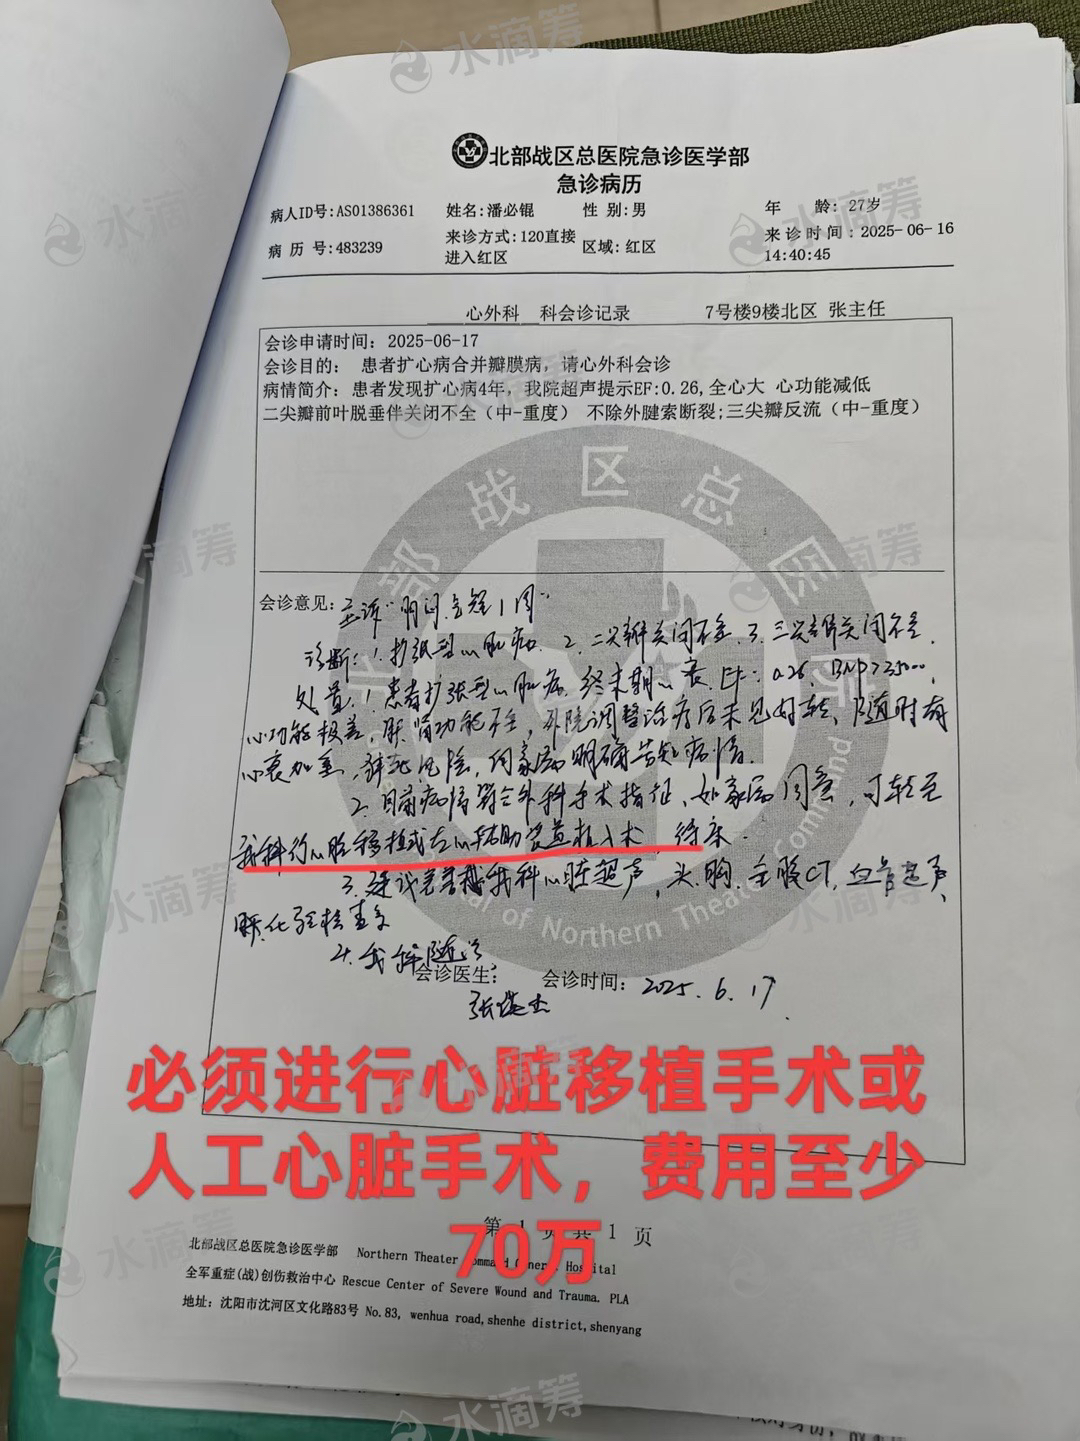 北部战区总医院急诊医学部
急诊病历
病人ID号:AS01386361 姓名:潘必锟 性 别:男 年 龄:27岁
病 历 号:483239 来诊方式:120直接进入红区 区域:红区 来诊时间:2025-06-16 14:40:45
心外科 科会诊记录 7号楼9楼北区 张主任
会诊申请时间: 2025-06-17
会诊目的: 患者扩心病合并瓣膜病,请心外科会诊
病情简介: 患者发现扩心病4年, 我院超声提示EF:0.26,全心大 心功能减低
二尖瓣前叶脱垂伴关闭不全(中-重度) 不除外腱索断裂;三尖瓣反流(中-重度)
会诊意见: 主诉"胸闷气短1周"
诊断: 1.扩张型心肌病. 2.二尖瓣关闭不全. 3.三尖瓣关闭不全.
处置: 1.患者扩张型心肌病, 终末期心衰, EF: 0.26, BNP>35000,
心功能极差, 肝肾功能不全, 外院调整治疗后未见好转, 随时有
心衰加重, 猝死风险, 向家属明确告知病情.
2.目前病情符合外科手术指征, 如家属同意, 可转至
我科行心脏移植或左心辅助装置植入术, 待床.
3.建议完善我科心脏超声, 头.胸.全腹CT, 血管超声
化验检查
4.我科随诊
会诊医生: 会诊时间: 2025.6.17
必须进行心脏移植手术或
人工心脏手术,费用至少
70万
第 1 页共 1 页
北部战区总医院急诊医学部 Northern Theater Command General Hospital
全军重症(战)创伤救治中心 Rescue Center of Severe Wound and Trauma. PLA
地址: 沈阳市沈河区文化路83号 No.83, wenhua road,shenhe district,shenyang
水滴筹